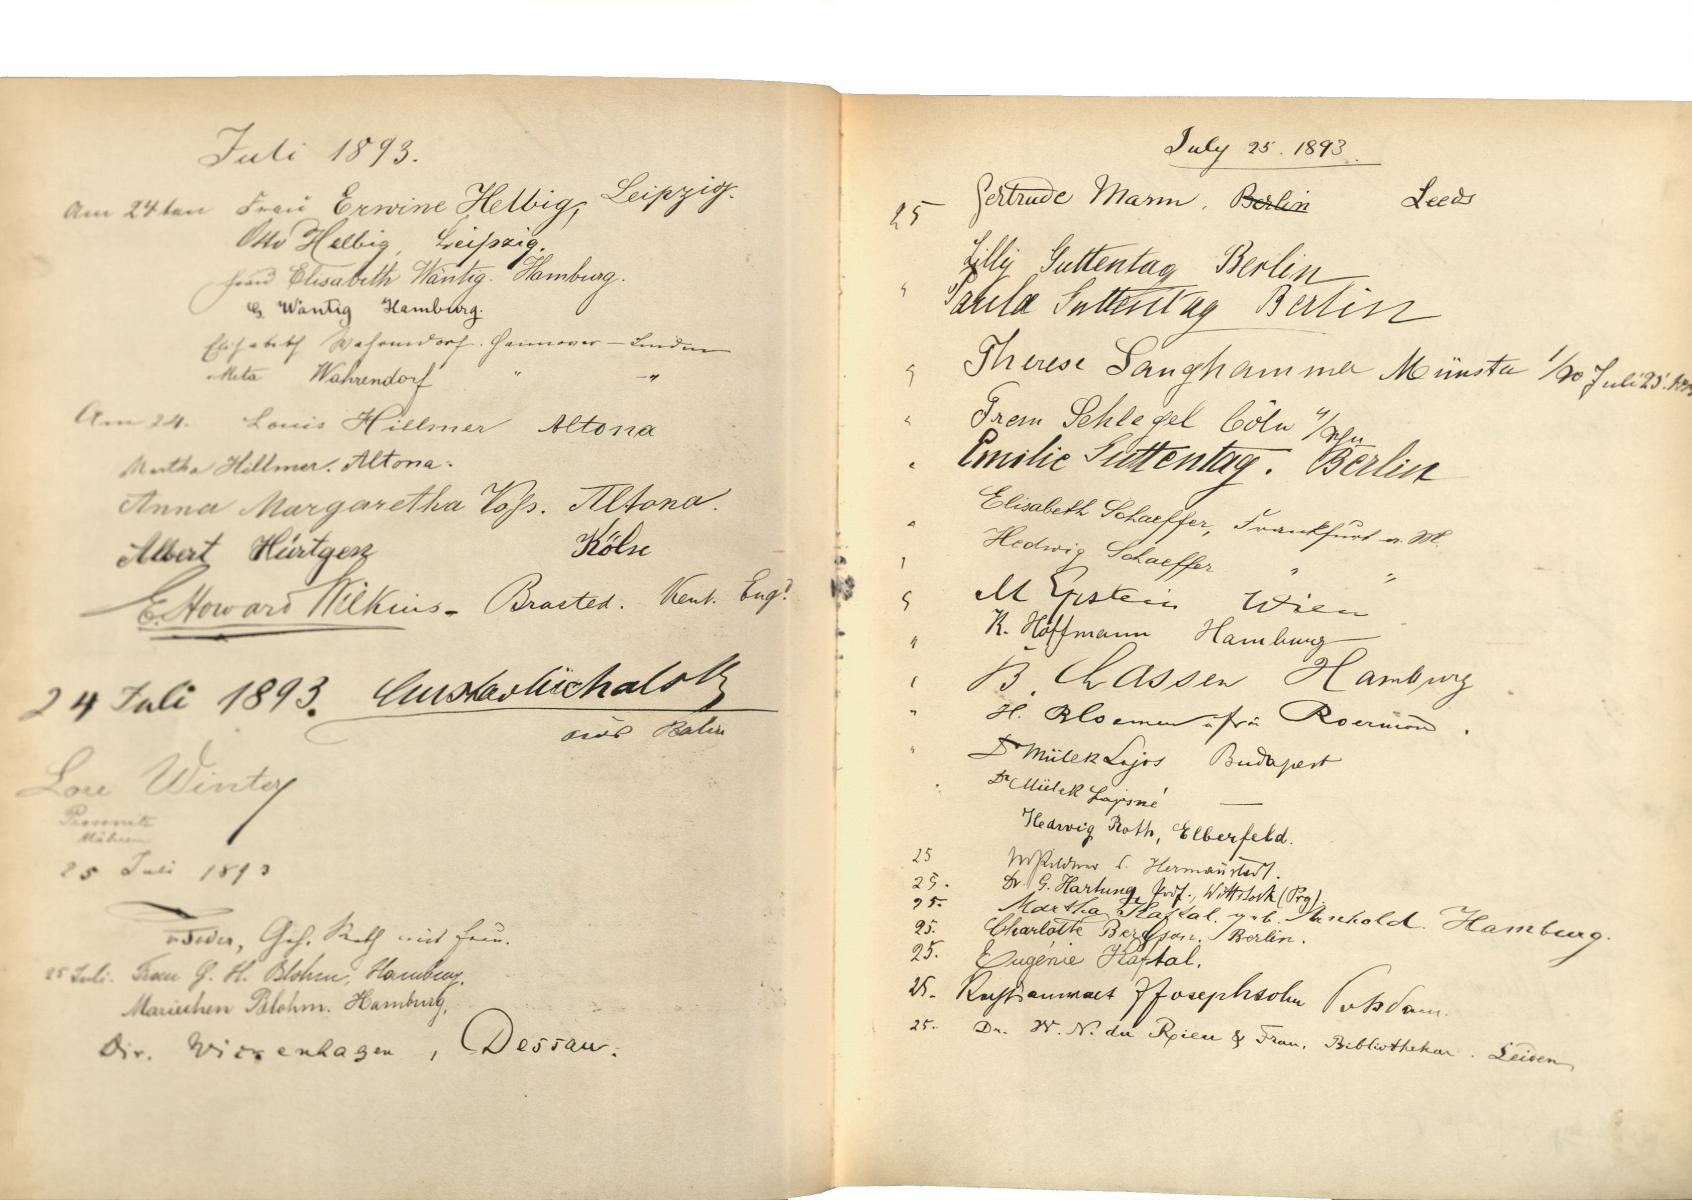 Juli 1893.
Am 24ten Frau Erwine Helbig, Leipzig.
Otto Helbig, Leipzig.
Frau Elisabeth Wäntig. Hamburg.
G. Wäntig Hamburg.
Elisabeth Wahrendorf. Hannover - Linden
Meta Wahrendorf " - "
Am 24. Louis Hillmer Altona
Martha Hillmer. Altona.
Anna Margaretha Voss. Altona.
Albert Hürtgen Köln
E. Howard Wilkins - Brasted. Kent. Engd
24 Juli 1893. Gustav Michalski
aus Berlin
Lore Winter
Mähren
25 Juli 1893
Geh. Rath und Frau.
25 Juli. Frau G. H. Blohm, Hamburg.
Mariechen Blohm. Hamburg.
Dir. , Dessau.
July 25. 1893.
25 Gertrude Mann. Berlin Leeds
Lilly Guttentag Berlin
" Paula Guttentag Berlin
" Therese Langhammer Münster Juli 25.
" Schlegel Cöln
" Emilie Guttentag. Berlin
" Elisabeth Schaeffer, Frankfurt a. M.
" Hedwig Schaeffer " "
" M Epstein Wien
" K. Hoffmann Hamburg
" B. Classen Hamburg
" H. Bloemen & fr Roermond.
" Dr Mülek Lajos Budapest
" Dr Mülek Lajosné —
Hedwig Roth, Elberfeld.
25 Hermannstadt.
25. Dr. G. Hartung, Prof., Wittstock (Prg).
25. Martha Kaftal. geb. Arnhold. Hamburg.
25. Charlotte Bergson. Berlin.
25. Eugénie Kaftal.
25. Rechtsanwalt Josephsohn Potsdam.
25. Dr. W. N. du Rieu & Frau, Bibliothekar. Leiden